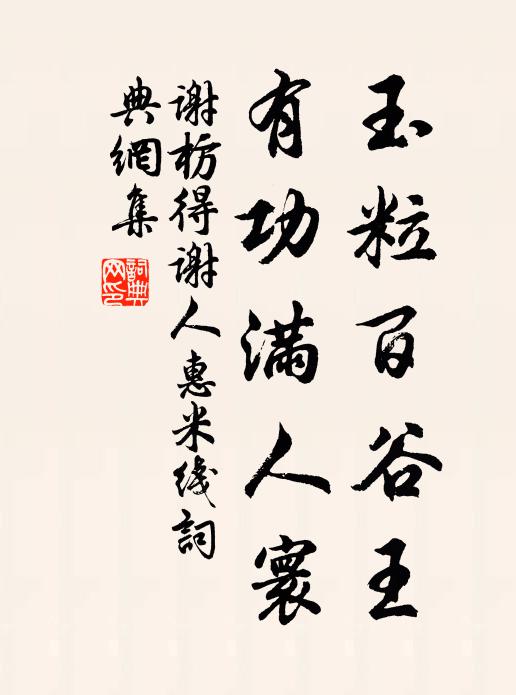 玉粒百谷王
有功满人寰
谢枋得谢人惠米线词
典網集
詞典網印